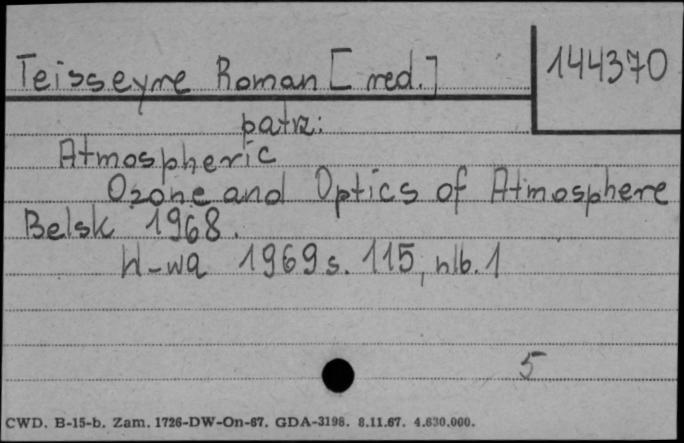 Teisseyre Roman [red.]
144370
patrz:
Atmospheric
Ozone and Optics of Atmosphere
Belsk 1968.
W-wa 1969 s. 115, nlb. 1
5
CWD. B-15-b. Zam. 1726-DW-On-67. GDA-3198. 8.11.67. 4.630.000.